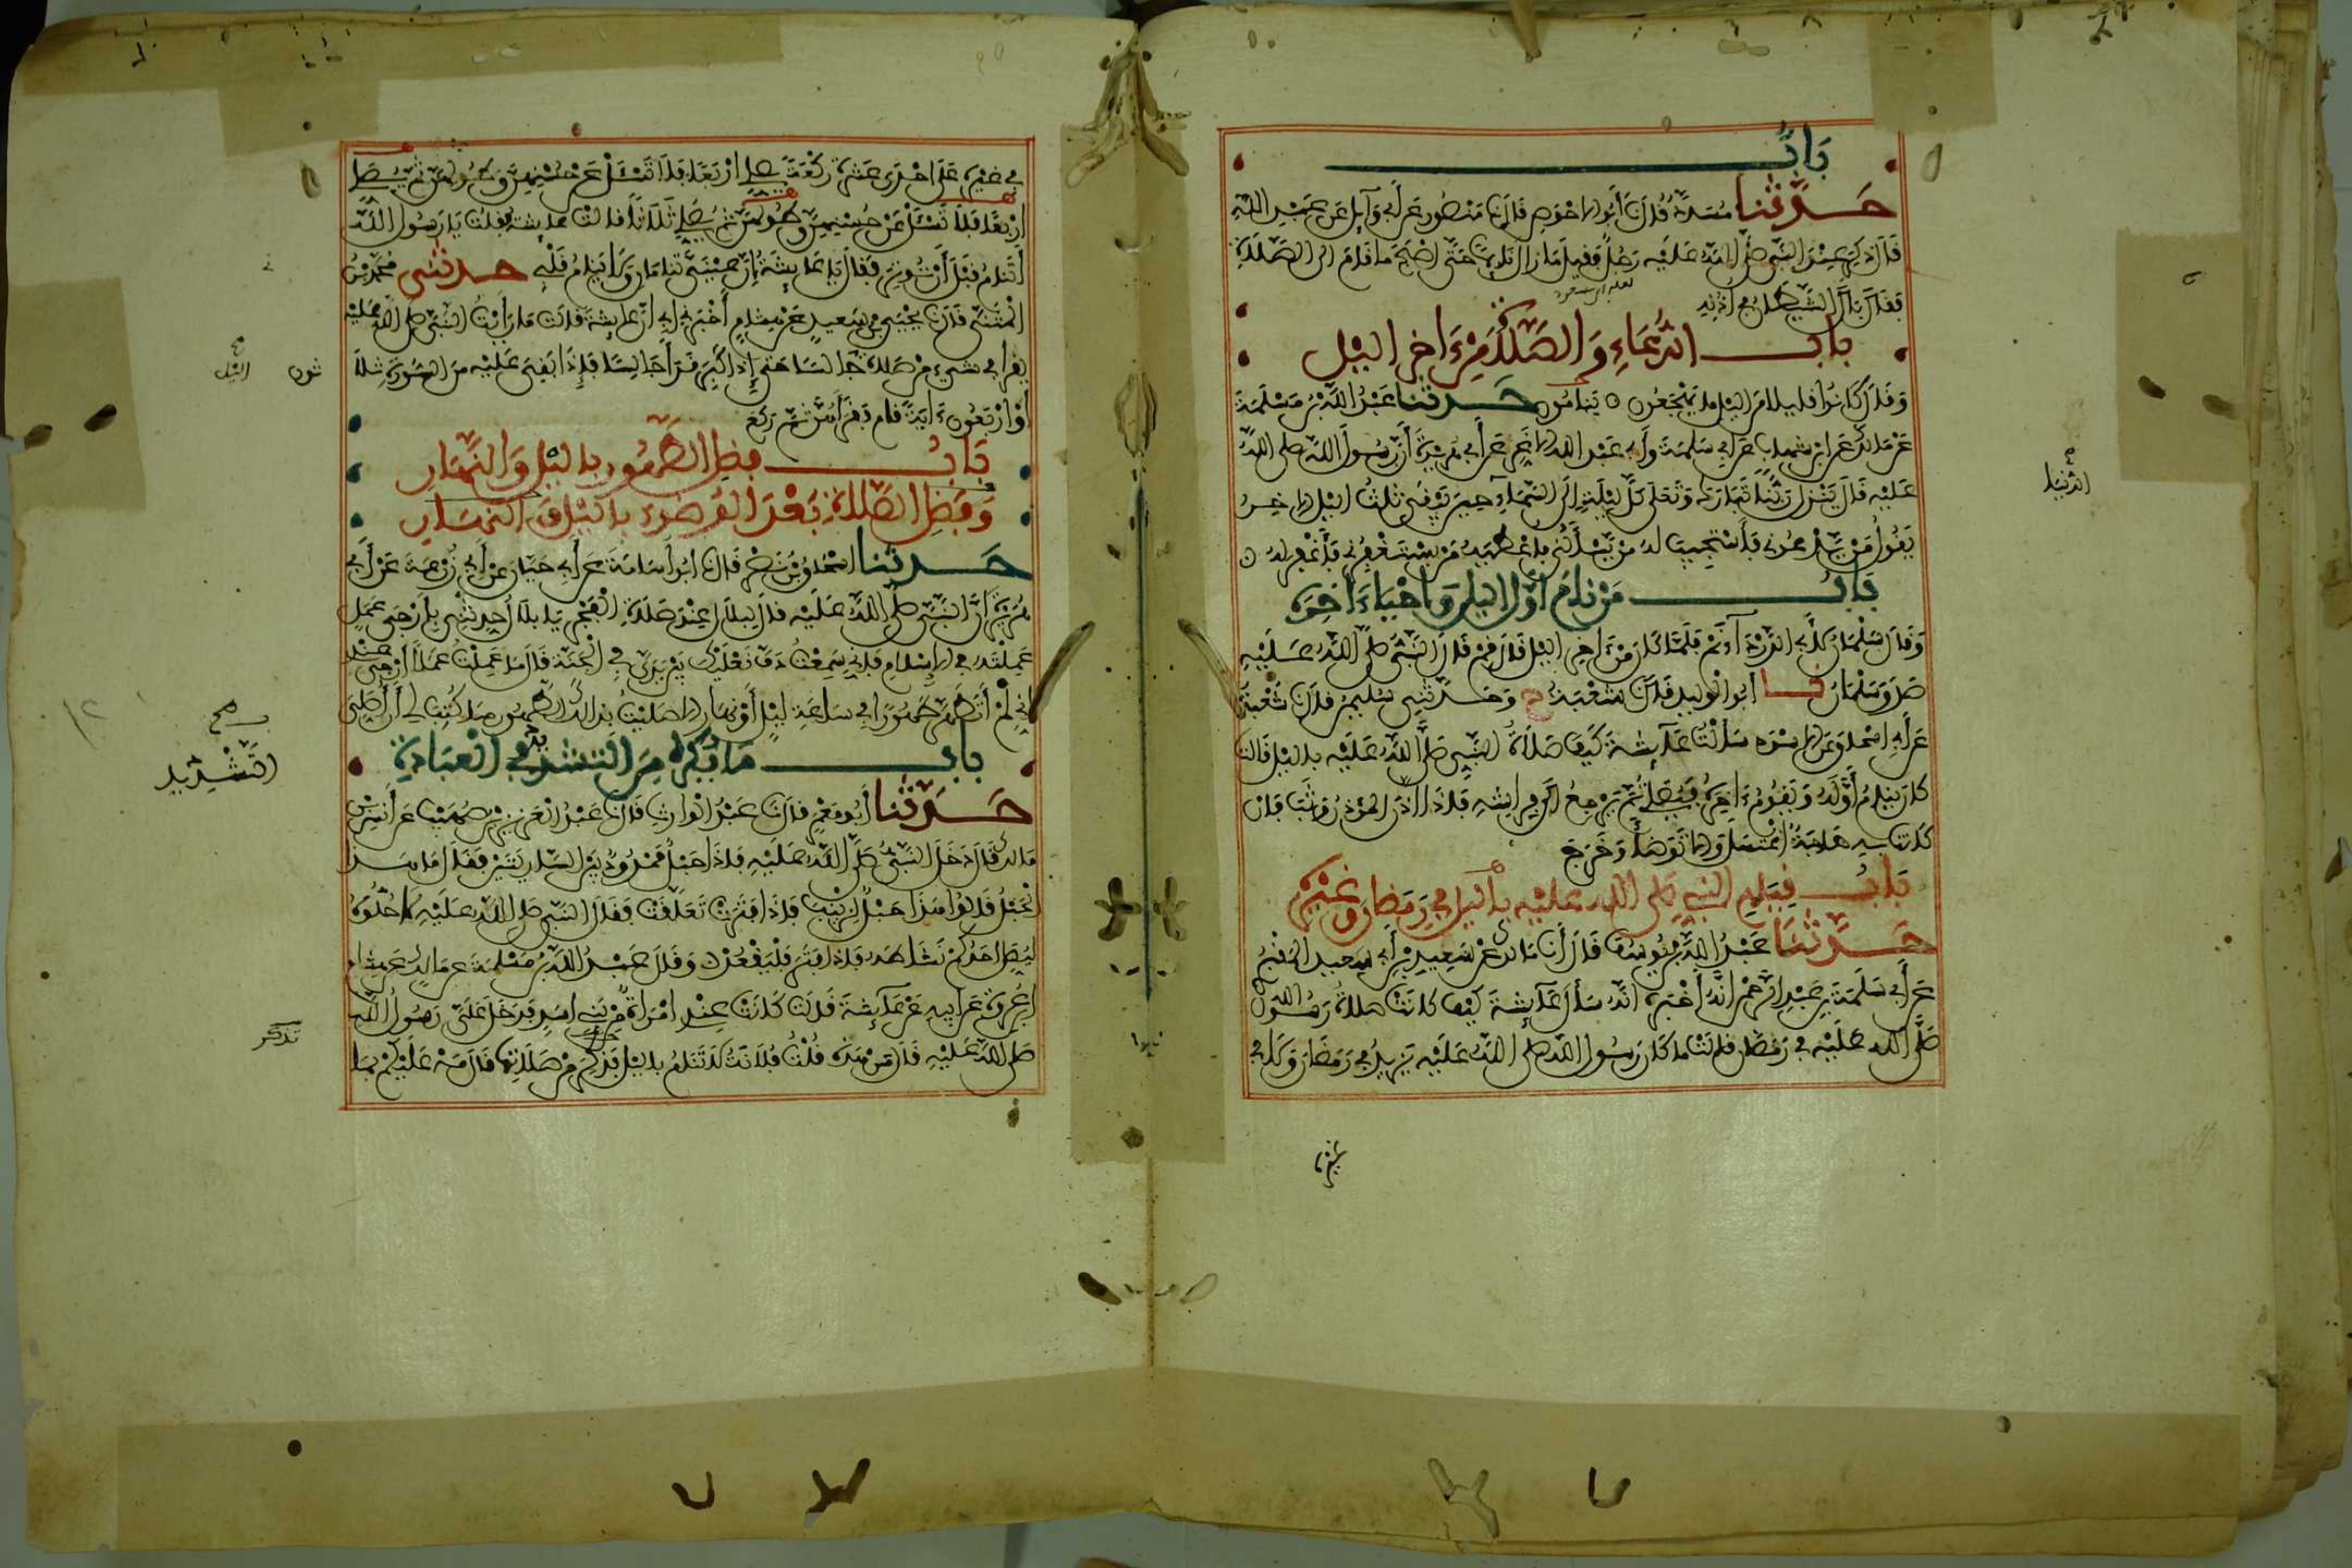 بَابٌ
حَدَّثَنَا مُسَدَّدٌ قَالَ نَا أَبُو الاحْوَصِ قَالَ نَا مَنْصُورٌ عَنْ أَبِي وَآيِلٍ عَنْ عَبْدِ اللهِ
قَالَ ذُكِرَ عِنْدَ النَّبِيِّ صَلَّى اللهُ عَلَيْهِ رَجُلٌ فَقِيلَ مَا زَالَ نَايِمًا حَتَّى أَصْبَحَ مَا قَامَ الَى الصَّلَاةِ
فَقَالَ بَالَ الشَّيْطَانُ فِي أُذُنِهِ
بَابُ الدُّعَاءِ وَالصَّلَاةِ مِنْ ءَاخِرِ اليْلِ
وَقَالَ كَانُوا قَلِيلًا مِنَ اليْلِ مَا يَهْجَعُونَ يَنَامُونَ حَدَّثَنَا عَبْدُ اللَّهِ بْنُ مَسْلَمَةَ
عَنْ مَالِكٍ عَنِ ابْنِ شِهَابٍ عَنْ أَبِي سَلَمَةَ وَأَبِي عَبْدِ اللهِ الاغَرِّ عَنْ أَبِي هُرَيْرَةَ أَنَّ رَسُولَ اللهِ صلى اللهُ
عَلَيْهِ قَالَ يَنْزِلُ رَبُّنَا تَبَارَكَ وَتَعَلَى كُلَّ لَيْلَةٍ إِلَى السَّمَاءِ حِينَ يَبْقَى ثُلُثُ اليْلِ الاخِرُ
الدُّنْيَا
يَقُولُ مَنْ يَدْعُونِي فَأَسْتَجِيبَ لَهُ مَنْ يَسْأَلُنِي فَأُعْطِيَهُ مَنْ يَسْتَغْفِرُنِي فَأَغْفِرَ لَهُ
بَابُ مَنْ نَامَ أَوَّلَ اليْلِ وَأَحْيَاءَاخِرَهُ
وَقَالَ سَلْمَانُ لِأَبِي الدَّرْدَآءِ نَمْ فَلَمَّا كَانَ مِنْ ءَاخِرِ اليْلِ قَالَ قُمْ قَالَ النَّبِيُّ صَلَّى اللهُ عَلَيْهِ
صَدَقَ سَلْمَانُ نا أَبُو الْوَلِيدِ قَالَ نَا شُعْبَةُ ح وَحَدَّثَنِي سُلَيْمَنُ قَالَ نَا شُعْبَةُ
عَنْ أَبِي إِسْحَاقَ عَنِ الاسْوَدِ سَأَلْتُ عَآئِشَةَ كَيْفَ صَلَاةُ النَّبِيِّ صَلَّى اللهُ عَلَيْهِ بِاليْلِ قَالَتْ
كَانَ يَنَامُ أَوَّلَهُ وَيَقُومُ ءَاخِرَهُ فَيُصَلِّي ثُمَّ يَرْجِعُ إِلَى فِرَاشِهِ فَإِذَا أَذَّنَ الْمُؤَذِّنُ وَثَبَ فَإِنْ
كَانَتْ بِهِ حَاجَةٌ اغْتَسَلَ وَإِلَّا تَوَضَّأَ وَخَرَجَ
بَابُ قِيَامِ النَّبِيِّ صَلَّى اللهُ عَلَيْهِ بِاليْلِ فِي رَمَضَانَ وَغَيْرِهِ
حَدَّثَنَا عَبْدُ اللَّهِ بْنُ يُوسُفَ قَالَ أَنَا مَالِكٌ عَنْ سَعِيدِ بْنِ أَبِي سَعِيدٍ الْمَقْبُرِيِّ
عَنْ أَبِي سَلَمَةَ بْنِ عَبْدِ الرَّحْمَنِ أَنَّهُ أَخْبَرَهُ أَنَّهُ سَأَلَ عَآئِشَةَ كَيْفَ كَانَتْ صَلَاةُ رَسُولِ اللهِ
صَلَّى اللهُ عَلَيْهِ فِي رَمَضَانَ قَالَتْ مَا كَانَ رَسُولُ اللهِ صلى اللهُ عَلَيْهِ يَزِيدُ فِي رَمَضَانَ وَلَا فِي
غيره
فِي غَيْرِهِ عَلَى إِحْدَى عَشْرَةَ رَكْعَةً يُصَلِّي أَرْبَعًا فَلَا تَسْئَلْ عَنْ حُسْنِهِنَّ وَطُولِهِنَّ ثُمَّ يُصَلِّي
أَرْبَعًا فَلَا تَسْئَلْ عَنْ حُسْنِهِنَّ وَطُولِهِنَّ ثُمَّ يُصَلِّي ثَلَاثًا قَالَتْ عَايِشَةُ فَقُلْتُ يَا رَسُولَ اللَّهِ
أَتَنَامُ قَبْلَ أَنْ تُوتِرَ فَقَالَ يَا عَايِشَةُ إِنَّ عَيْنَيَّ تَنَامَانِ وَلَا يَنَامُ قَلْبِي حدثني مُحَمَّدُ بْنُ
الْمُثَنَّى قَالَ نَا يَحْيَى بْنُ سَعِيدٍ عَنْ هِشَامٍ أَخْبَرَنِي أَبِي أَنَّ عَايِشَةَ قَالَتْ مَا رَأَيْتُ النَّبِيَّ صلى اللهُ عَلَيْهِ
يَقْرَأُ فِي شَيْءٍ مِنْ صَلَاةِ جَالِسًا حَتَّى إِذَا كَبِرَ قَرَأَ جَالِسًا فَإِذَا بَقِيَ عَلَيْهِ مِنَ السُّورَةِ ثَلَا
ثون
اليْل
أَوْ أَرْبَعُونَ ءَايَةً قَامَ فَقَرَأَهُنَّ ثُمَّ رَكَعَ
بَابُ فَضْلِ الطُّهُورِ بِاليْلِ وَالنَّهَارِ
وَفَضْلِ الصَّلَاةِ بَعْدَ الْوُضُوءِ بِاليْلِ وَالنَّهَارِ
حَدَّثَنَا إِسْحَاقُ بْنُ نَصْرٍ قَالَ نَا أَبُو أُسَامَةَ عَنْ أَبِي حَيَّانَ عَنْ أَبِي زُرْعَةَ عَنْ أَبِي
هُرَيْرَةَ أَنَّ النَّبِيَّ صَلَّى اللهُ عَلَيْهِ قَالَ لِبِلَالٍ عِنْدَ صَلَاةِ الْفَجْرِ يَا بِلَالُ حَدِّثْنِي بِأَرْجَى عَمَلٍ
عَمِلْتَهُ فِي الإِسْلَامِ فَإِنِّي سَمِعْتُ دَفَّ نَعْلَيْكَ بَيْنَ يَدَيَّ فِي الْجَنَّةِ قَالَ مَا عَمِلْتُ عَمَلًا أَرْجَى عندي
أَنِّي لَمْ أَتَطَهَّرْ طُهُورًا فِي سَاعَةِ لَيْلٍ أَوْ نَهَارٍ إلا صَلَّيْتُ بِذَلِكَ الطُّهُورِ مَا كُتِبَ لِي أَنْ أُصَلِّيَ
بَابُ مَا يُكْرَهُ مِنَ التَّشَدُّدِ فِي الْعِبَادَةِ
صح
التَّشْدِيد
حَدَّثَنَا أَبُو مَعْمَرٍ قَالَ نَا عَبْدُ الْوَارِثِ قَالَ نَا عَبْدُ الْعَزِيزِ بْنُ صُهَيْبٍ عَنْ أَنَسِ بْنِ
مَالِكٍ قَالَ دَخَلَ النَّبِيُّ صَلَّى اللهُ عَلَيْهِ فَإِذَا حَبْلٌ مَمْدُودٌ بَيْنَ السَّارِيَتَيْنِ فَقَالَ مَا هَذَا
الْحَبْلُ قَالُوا هَذَا حَبْلٌ لِزَيْنَبَ فَإِذَا فَتَرَتْ تَعَلَّقَتْ فَقَالَ النَّبِيُّ صَلَّى اللهُ عَلَيْهِ لَا حُلُّوهُ
لِيُصَلِّ أَحَدُكُمْ نَشَاطَهُ فَإِذَا فَتَرَ فَلْيَقْعُدْ وَقَالَ عَبْدُ اللَّهِ بْنُ مَسْلَمَةَ عَنْ مَالِكٍ عَنْ هِشَامِ
بْنِ عُرْوَةَ عَنْ أَبِيهِ عَنْ عَآئِشَةَ قَالَتْ كَانَتْ عِنْدِي امْرَأَةٌ مِنْ بَنِي أَسَدٍ فَدَخَلَ عَلَيَّ رَسُولُ اللَّهِ
تذكر
صَلَّى اللهُ عَلَيْهِ فَقَالَ مَنْ هَذِهِ قُلْتُ فُلَانَةُ لَا تَنَامُ بِاليْلِ فَذُكِرَ مِنْ صَلَاتِهَا فَقَالَ مَهْ عَلَيْكُمْ بِمَا